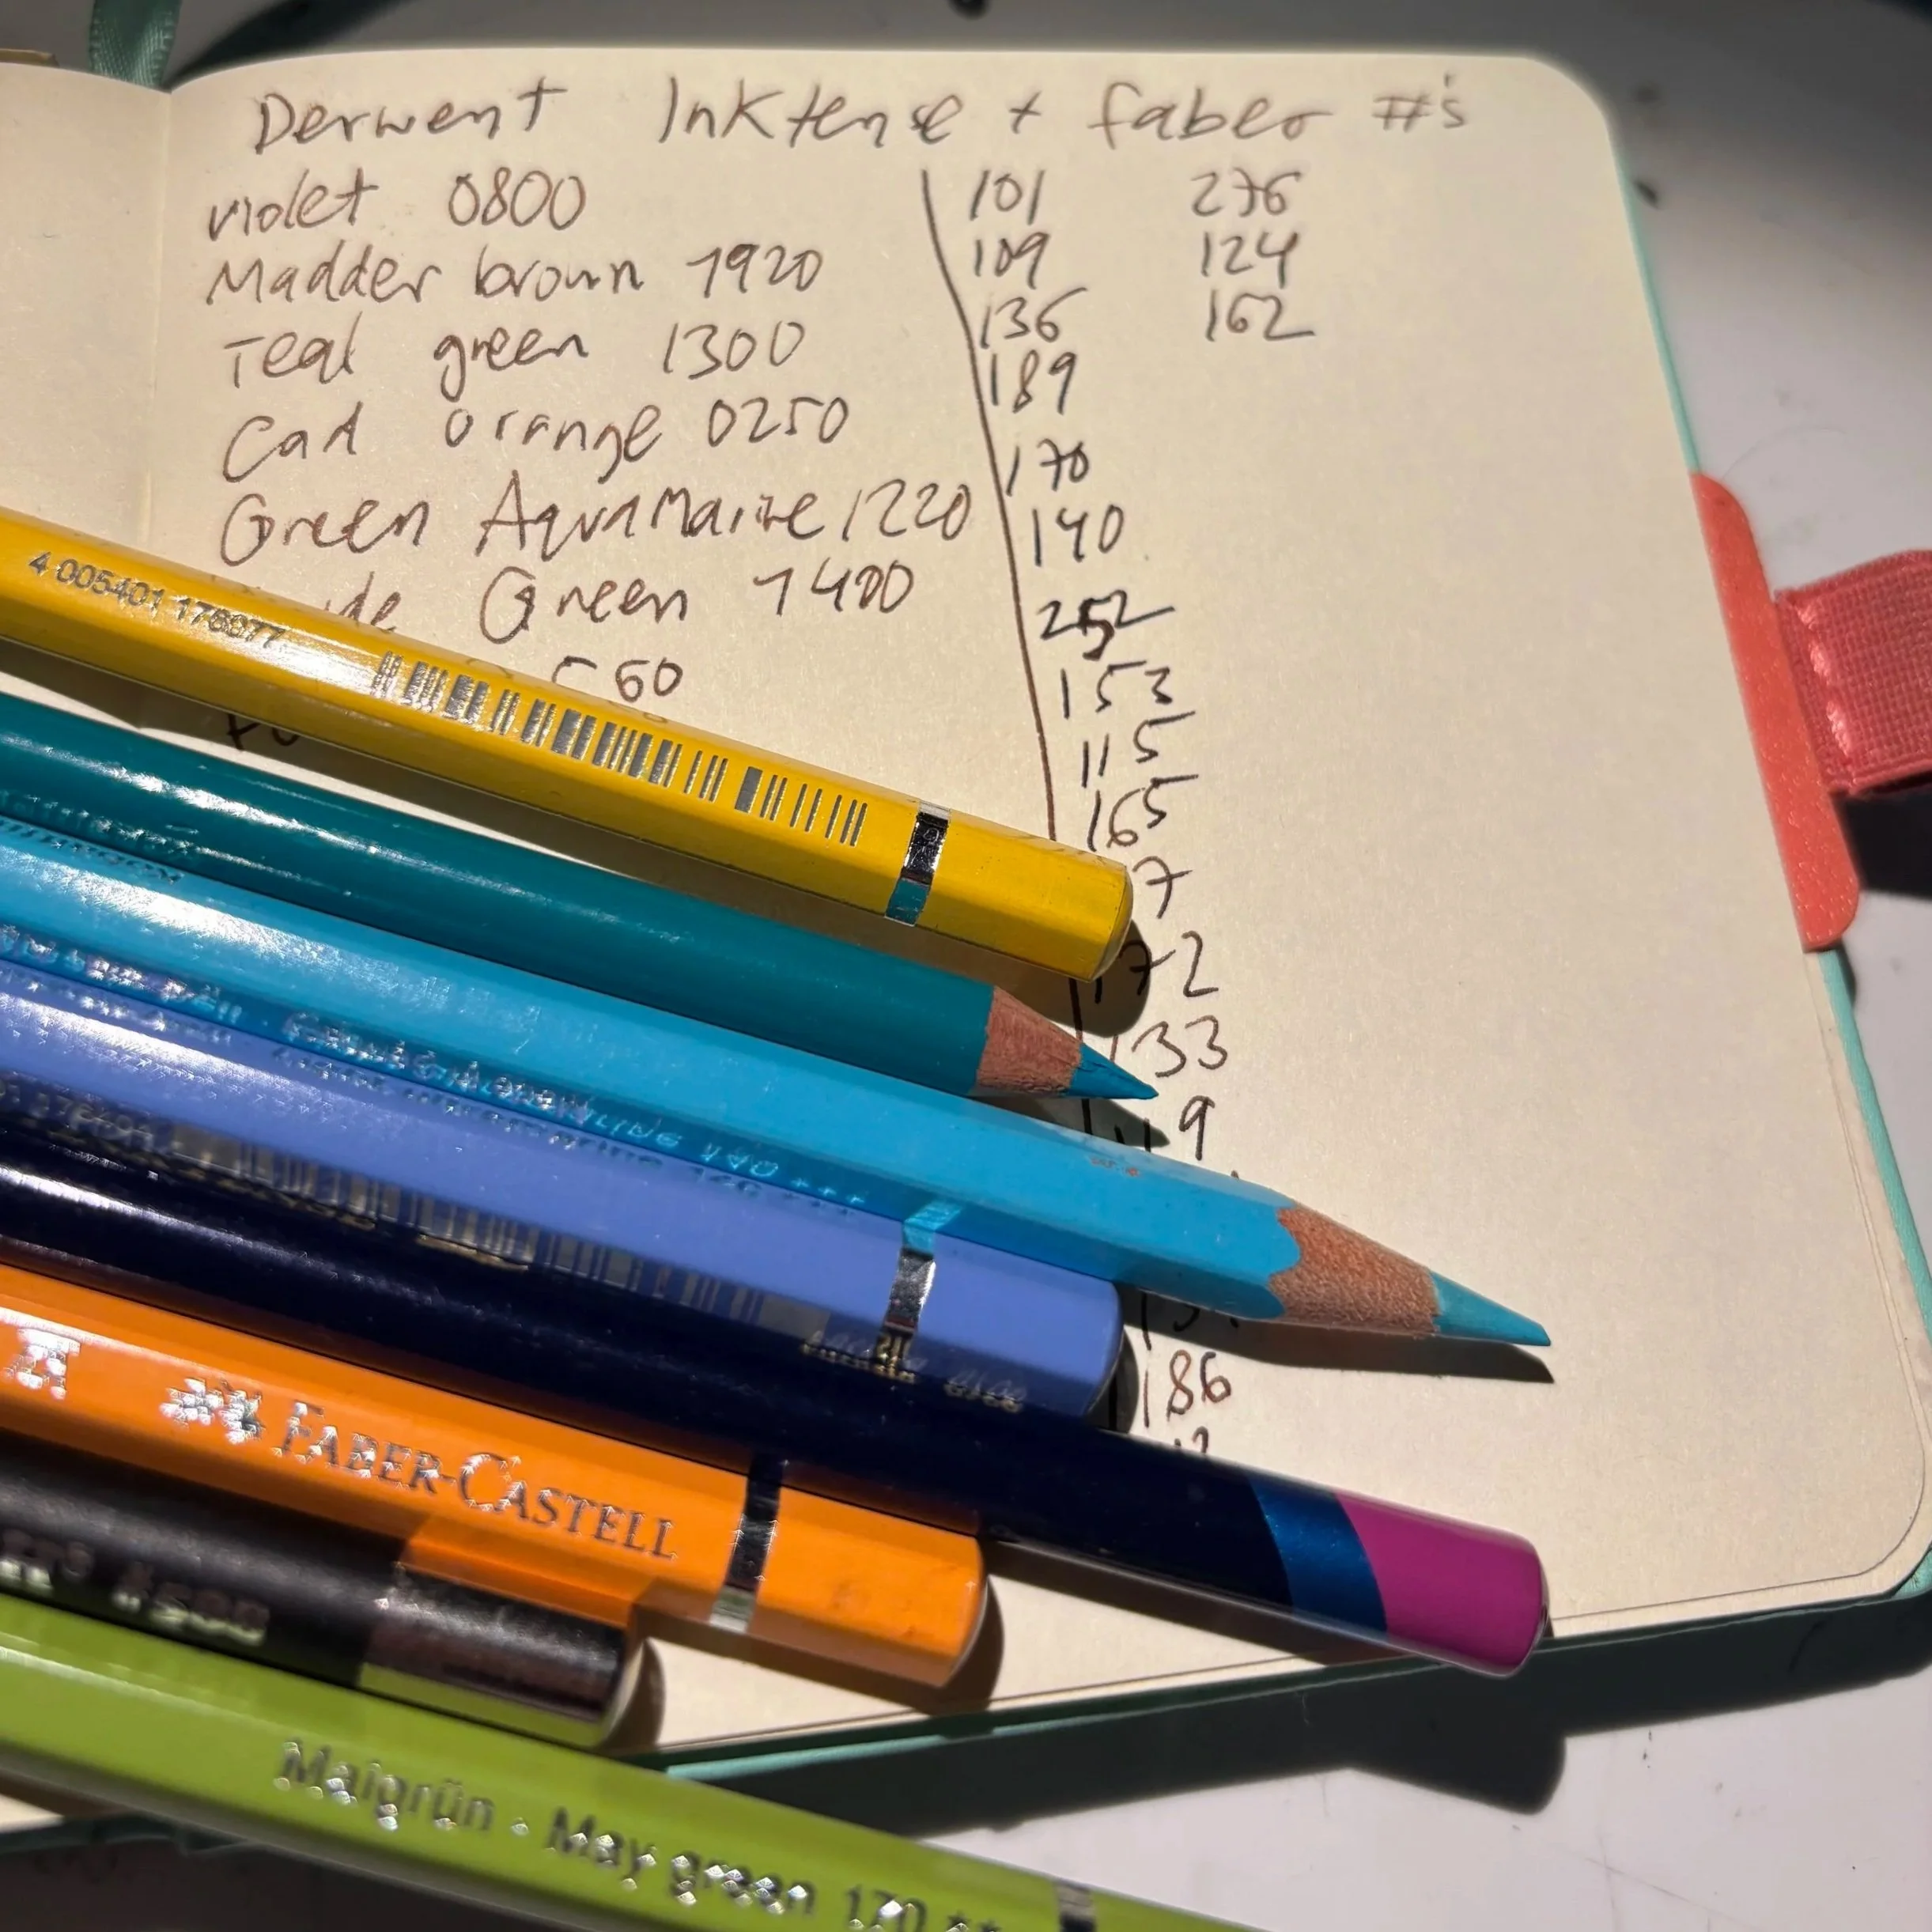 Derwent Inktense + faber #'s
violet 0800
Madder brown 1920
Teal green 1300
Cad orange 0250
Green Aquamarine 1220
Green 1400
60
101
109
136
189
170
140
252
153
115
165
7
172
133
119
186
276
124
162
4 005401 176077
140 +++
FABER-CASTELL
Maigrün · May green 170 **